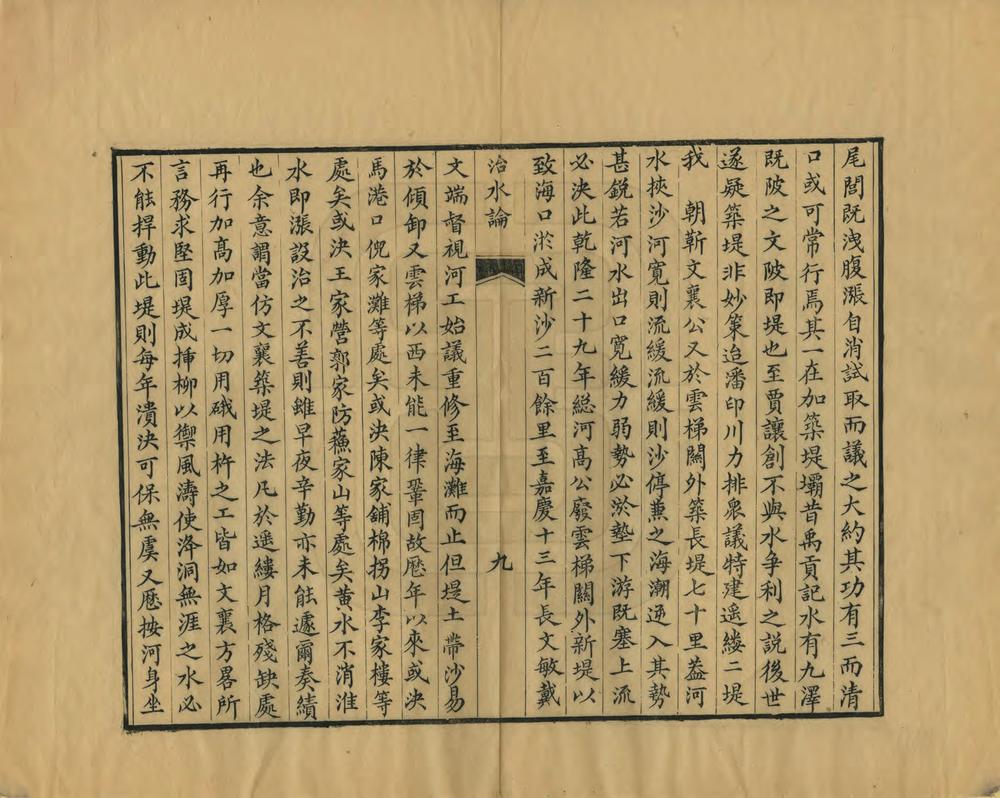 尾閭既洩腹漲自消試取而議之大約其功有三而清
口或可常行焉其一在加築堤壩昔禹貢記水有九澤
既陂之文陂即堤也至賈讓創不與水争利之説後世
遂疑築堤非妙策迨潘印川力排衆議特建遥縷二堤
我　朝靳文襄公又於雲梯關外築長堤七十里葢河
水挾沙河寬則流緩流緩則沙停兼之海潮逆入其勢
甚銳若河水出口寬緩力弱勢必淤墊下游既塞上流
必決此乾隆二十九年総河髙公廢雲梯關外新堤以
致海口淤成新沙二百餘里至嘉慶十三年長文敏戴
治水論
九
文端督視河工始議重修至海灘而止但堤土帶沙易
於傾卸又雲梯以西未能一律鞏固故歴年以來或決
馬港口倪家灘等處矣或決陳家舖棉拐山李家樓等
處矣或決王家營郭家防蘓家山等處矣黄水不消淮
水即漲設治之不善則雖早夜辛勤亦未能遽爾奏績
也余意謂當仿文襄築堤之法凡於遥縷月格殘缺處
再行加髙加厚一切用硪用杵之工皆如文襄方畧所
言務求堅固堤成揷柳以禦風濤使洚洞無涯之水必
不能捍動此堤則每年潰決可保無虞又歴按河身坐